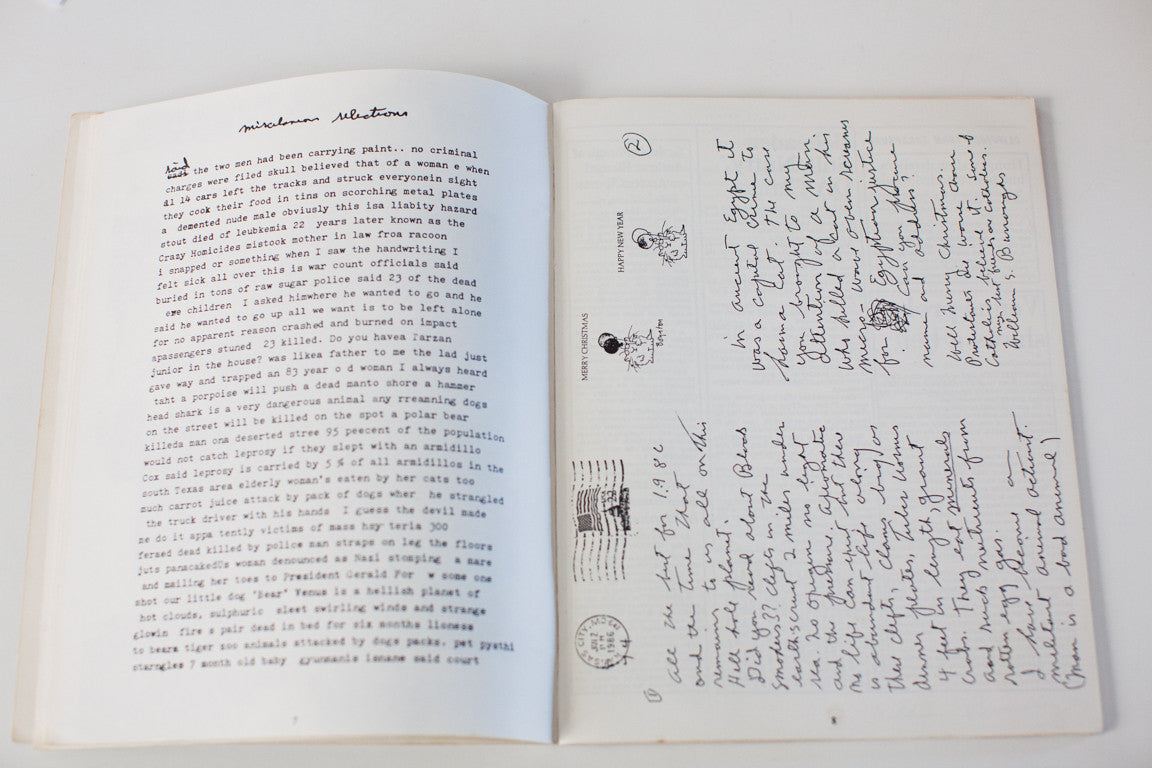 miscelaneous selections
said the two men had been carrying paint.. no criminal
charges were filed skull believed that of a woman e when
al 14 cars left the tracks and struck everyonein sight
they cook their food in tins on scorching metal plates
a demented nude male obviusly this isa liabity hazard
stout died of leubkemia 22 years later known as the
Crazy Homicides mistook mother in law froa racoon
i snapped or something when I saw the handwriting I
felt sick all over this is war count officials said
buried in tons of raw sugar police said 23 of the dead
ewe children I asked himwhere he wanted to go and he
said he wanted to go up all we want is to be left alone
for no apparent reason crashed and burned on impact
apassengers stuned 23 killed. Do you havea Tarzan
junior in the house? was likea father to me the lad just
gave way and trapped an 83 year o d woman I always heard
taht a porpoise will push a dead manto shore a hammer
head shark is a very dangerous animal any rreamning dogs
on the street will be killed on the spot a polar bear
killeda man ona deserted stree 95 peecent of the population
would not catch leprosy if they slept with an armidillo
Cox said leprosy is carried by 5 % of all armidillos in the
south Texas area elderly woman's eaten by her cats too
much carrot juice attack by pack of dogs wher he strangled
the truck driver with his hands I guess the devil made
me do it appa tently victims of mass hsy teria 300
fersed dead killed by police man straps on leg the floors
juts panacakedUs woman denounced as Nazi stomping a mare
and mailing her toes to President Gerald For w some one
shot our little dog 'Bear' Venus is a hellish planet of
hot clouds, sulphuric sleet swirling winds and strange
glowin fire s pair dead in bed for six months lioness
to bears tiger zoo animals attacked by dogs packs. pet pythi
starngles 7 month old baby gyunmanis isname said court
7
1
All the best for 1986
and the time that
remains to us all on this
Hell hole planet.
Did you read about Black
Smokis?? Clefts in the
earths crust 2 miles under
sea. No oxygen no light
and the pressure, aromatic
No life can exist but there
is abundant life along
these clefts, clams big as
dinner plates, tubes worms
4 feet in length, giant
crabs. They eat minerals
and suck nutrients from
rotten egg gas.
I have become a
militant animal activist.
(man is a bad animal)
MERRY CHRISTMAS
Boynton
HAPPY NEW YEAR
2
in ancient Egypt it
was a capital crime to
harm a cat. The case
you brought to my
attention of a man
who killed a cat in his
micro-wave oven screams
for Egyptian justice
! Can you phone
name and address?
Well merry Christmas.
Protestants die worse than
Catholics believe it. some of
my best friends are catholics.
William S. Burroughs
JUN 2
PM
1986
8